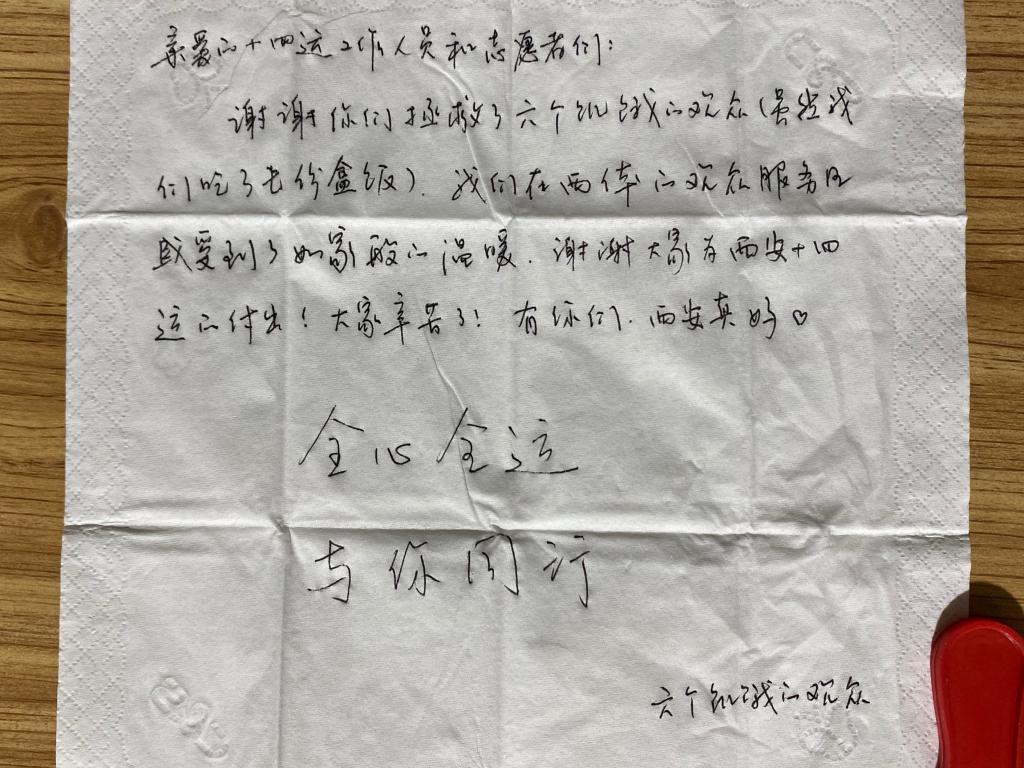 亲爱的十四运工作人员和志愿者们:
谢谢你们拯救了六个饥饿的观众(虽然我
们吃了七份盒饭). 我们在西体的观众服务区
感受到了如家般的温暖. 谢谢大家为西安十四
运的付出! 大家辛苦了! 有你们. 西安真好♡
全心全运
与你同行
六个饥饿的观众